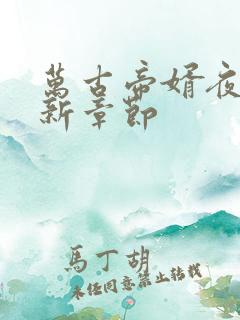 萬古帝婿夜
新章節
馬丁胡
未经同意禁止转载